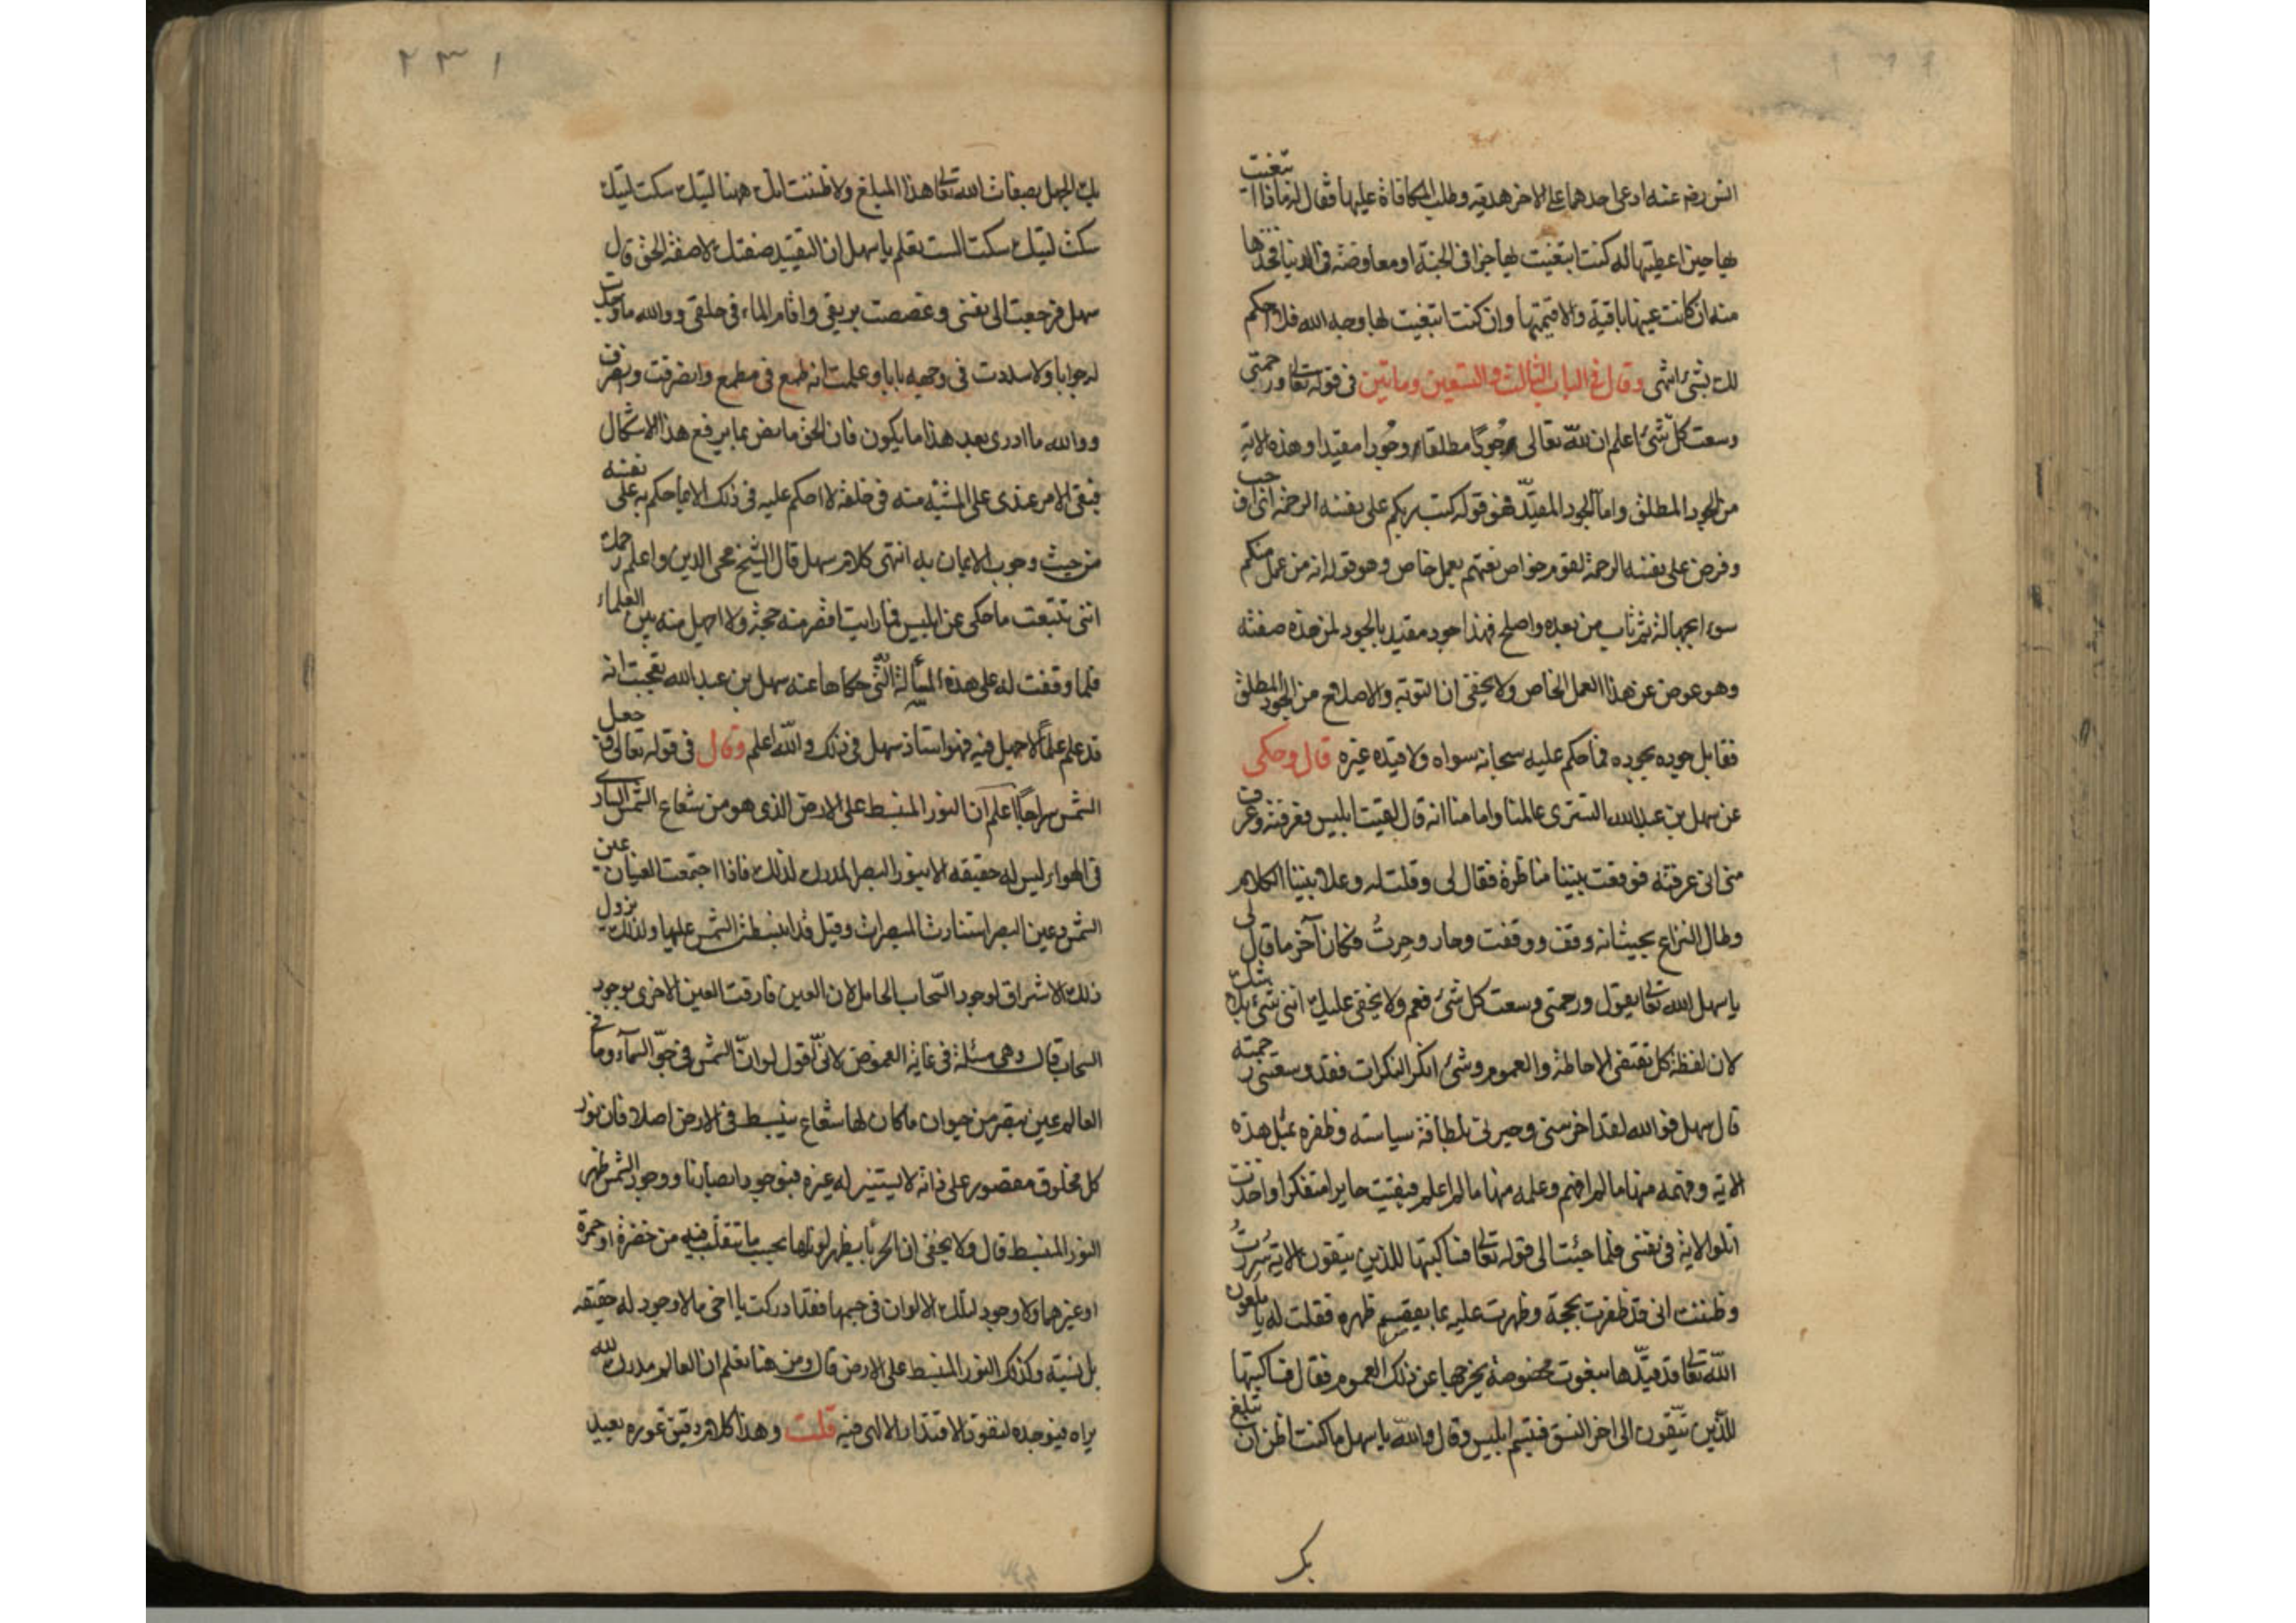 انس رضي عنه ادعى احدهما على الاخر هدية وطلب المكافاة عليها فقال له ماذا ابتغيت
بها حين اعطيتها له كنت ابتغيت بها جزا في الجنة او معاوضة في الدنيا فخذها
منه ان كانت عينها باقية والا قيمتها وان كنت ابتغيت لها وجه الله فلا احكم
لك بشئ انتهى وقال في الباب الثالث والتسعين وماتين في قوله تعالى ورحمتي
وسعت كل شئ اعلم ان لله تعالى جودًا مطلقا وجُودا مقيدا وهذه الاية
من الجود المطلق واما الجود المقيّد فهو قوله كتب ربكم على نفسه الرحمة اي اوجب
وفرض على نفسه الرحمة لقوم خواص نعتهم بعمل خاص وهو قوله انه من عمل منكم
سوءا بجهالة ثم تاب من بعده واصلح فهذا جود مقيد بالجود لمن هذه صفته
وهو عوض عن هذا العمل الخاص ولا يخفى ان التوبة والاصلاح من الجود المطلق
فقابل جوده بجوده فما حكم عليه سبحانه سواه ولا قيده غيره قال وحكى
عن سهل بن عبد الله التستري عالمنا وامامنا انه قال لقيت ابليس فعرفته وعرف
منى انى عرفته فوقعت بيننا مناظرة فقال لى وقلت له وعلا بيننا الكلام
وطال النزاع بحيث انه وقف ووقفت وحار وحِرتُ فكان آخر ما قال لى
يا سهل الله تعالى يقول ورحمتي وسعت كل شئ فعم ولا يخفى عليك اننى شئ بلا شك
لان لفظة كل تقتضى الاحاطة والعموم وشئ انكر النكرات فقد وسعتني رحمته
قال سهل فوالله لقد اخرسنى وحيرنى بلطافة سياسته وظفره بمثل هذه
الاية وفهمه منها ما لم افهم وعلمه منها ما لم اعلم فبقيت حايرا متفكرا واخذت
اتلو الاية في نفسى فلما جئت الى قوله تعالى فساكتبها للذين يتقون الاية سُررتُ
وظننت انى قد ظفرت بحجة وظهرت عليه بما يقصم ظهره فقلت له يا ملعون
الله تعالى قد قيّدها بنعوت مخصوصة يخرجها عن ذلك العموم فقال فساكتبها
للّذين يتّقون الى اخر النسق فتبسم ابليس وقال والله يا سهل ما كنت اظن ان تبلغ
بك
٢٣١
بك الجهل بصفات الله تعالى هذا المبلغ ولا ظننت انك ههنا ليتك سكت ليتك
سكت ليتك سكت الست تعلم يا سهل ان التقييد صفتك لا صفة الحق قال
سهل فرجعت الى نفسى وغصصت بريقى واقام الماء في حلقى ووالله ما وجدت
له جوابا ولا سددت فى وجهه بابا وعلمت انه طمع فى مطمع وانصرفت وانصرف
ووالله ما ادرى بعد هذا ما يكون فان الحق ما نص بما يرفع هذا الاشكال
فبقى الامر عندى على المشيّة منه فى خلقه لا احكم عليه فى ذلك الا بما حكم به على نفسه
من حيث وجوب الايمان به انتهى كلام سهل قال الشيخ محى الدين واعلم رحمك
اننى تتبعت ما حكى عن ابليس فما رايت اقصر منه حجة ولا اجهل منه بين العلماء
فلما وقفت له على هذه المسألة التي حكاها عنه سهل بن عبد الله تعجبت انه
قد علم علمًا لا جهل فيه فهو استاذ سهل فى ذلك والله اعلم وقال فى قوله تعالى وجعل
الشمس سراجًا اعلم ان النور المنبسط على الارض الذى هو من شعاع الشمس السارى
فى الهواء ليس له حقيقة الا بنور البصر المدرك لذلك فاذا اجتمعت العينان عين
الشمس وعين البصر استنارت المبصرات وقيل قد انبسطت الشمس عليها ولذلك يزول
ذلك الاشراق لوجود السّحاب الحامل لان العين فارقت العين الاخرى بوجود
السحاب قال وهى مسئلة فى غاية الغموض لانّى اقول لو انّ الشمس فى جوّ السمآء وما فى
العالم عين تبصر من حيوان ما كان لها شعاع ينبسط فى الارض اصلا فان نور
كل مخلوق مقصور على ذاته لا يستنير له غيره فبوجود ابصارنا ووجود الشمس ظهر
النور المنبسط قال ولا يخفى ان الحرباء يظهر لونها بحسب ما تتقلّب فيه من خضرة او حمرة
او غيرهما ولا وجود لتلك الالوان فى جسمها فقد ادركت يا اخى ما لا وجود له حقيقة
بل نسبة وكذلك النور المنبسط على الارض قال ومن هنا تعلم ان العالم مدرك لله
يراه فيوجده لنفوذ الاقتدار الالهى فيه قلت وهذا كلام دقيق غوره بعيد